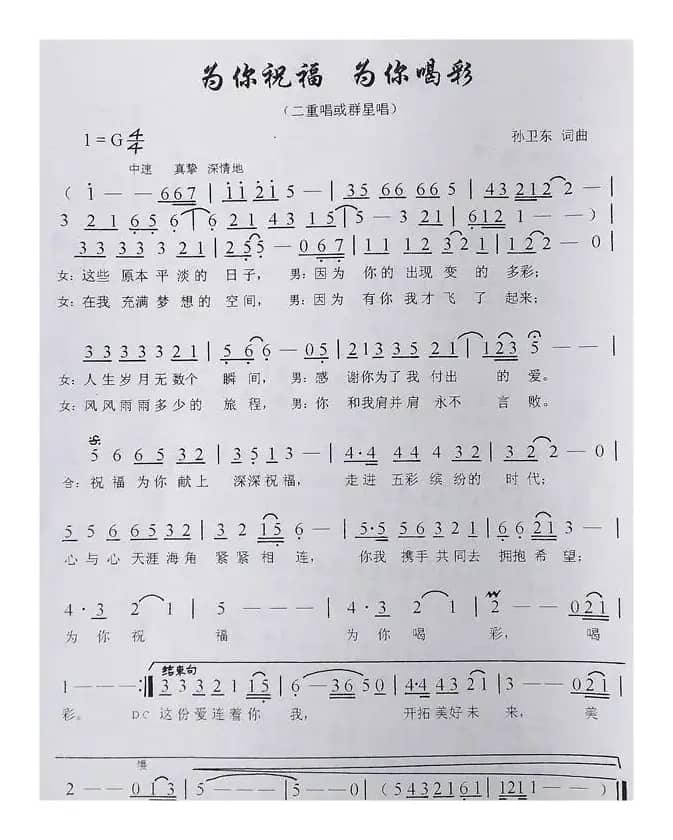 为你祝福 为你喝彩
（二重唱或群星唱）
1=G 4/4
孙卫东 词曲
中速 真挚 深情地
（i — — 667 | i i 2 i 5 — | 35 66 66 5 | 4 3 2 1 2 2 — |
3 2 1 6 5 6 — | 6 2 1 4 3 1 5 | 5 — 3 2 1 | 6 1 2 1 — — ）|
3 3 3 3 3 2 1 | 2 5 5 — 0 6 7 | 1 1 1 2 3 2 2 1 | 2 2 — 0 |
女:这些 原本 平 淡 的 日 子， 男:因为 你的 出现 变 的 多彩;
女:在我 充满 梦 想 的 空间， 男:因为 有你 我才 飞 了 起来;
3 3 3 3 3 2 1 | 5 6 6 — 0 5 | 2 1 3 3 5 2 2 1 | 1 2 3 5 — — |
女:人生 岁月 无数个 瞬间， 男:感 谢你为了我 付出 的 爱。
女:风风雨雨多少的 旅程， 男:你 和我肩并肩 永不 言败。
5 6 6 5 3 2 | 3 5 1 3 — | 4·4 4 4 5 4 | 3 2 2 — 0 |
合:祝 福 为你 献上 深深祝福， 走进 五彩 缤纷的 时代;
5 5 6 6 5 3 2 | 3 2 1 5 6 — | 5·5 5 6 5 4 | 6 6 2 1 3 — |
心与心 天涯海角 紧紧相连， 你我 携手共同去 拥抱希望;
4·3 2 1 | 5 — — — | 4·3 2 1 | 2 — — 0 2 1 |
为你祝 福 为你喝 彩， 喝
结束句
1 — — — :‖ 3 3 3 2 1 1 5 | 6 — 3 6 5 0 | 4·4 4 3 2 1 | 3 — — 2 1 |
彩。 D.C 这份爱连着你 我， 开拓美好未来， 美
慢
2 — — 0 1 3 | 5 — — — | 5 — — 0 | （5 4 3 2 1 6 1 | 1 2 1 1 — — ）‖